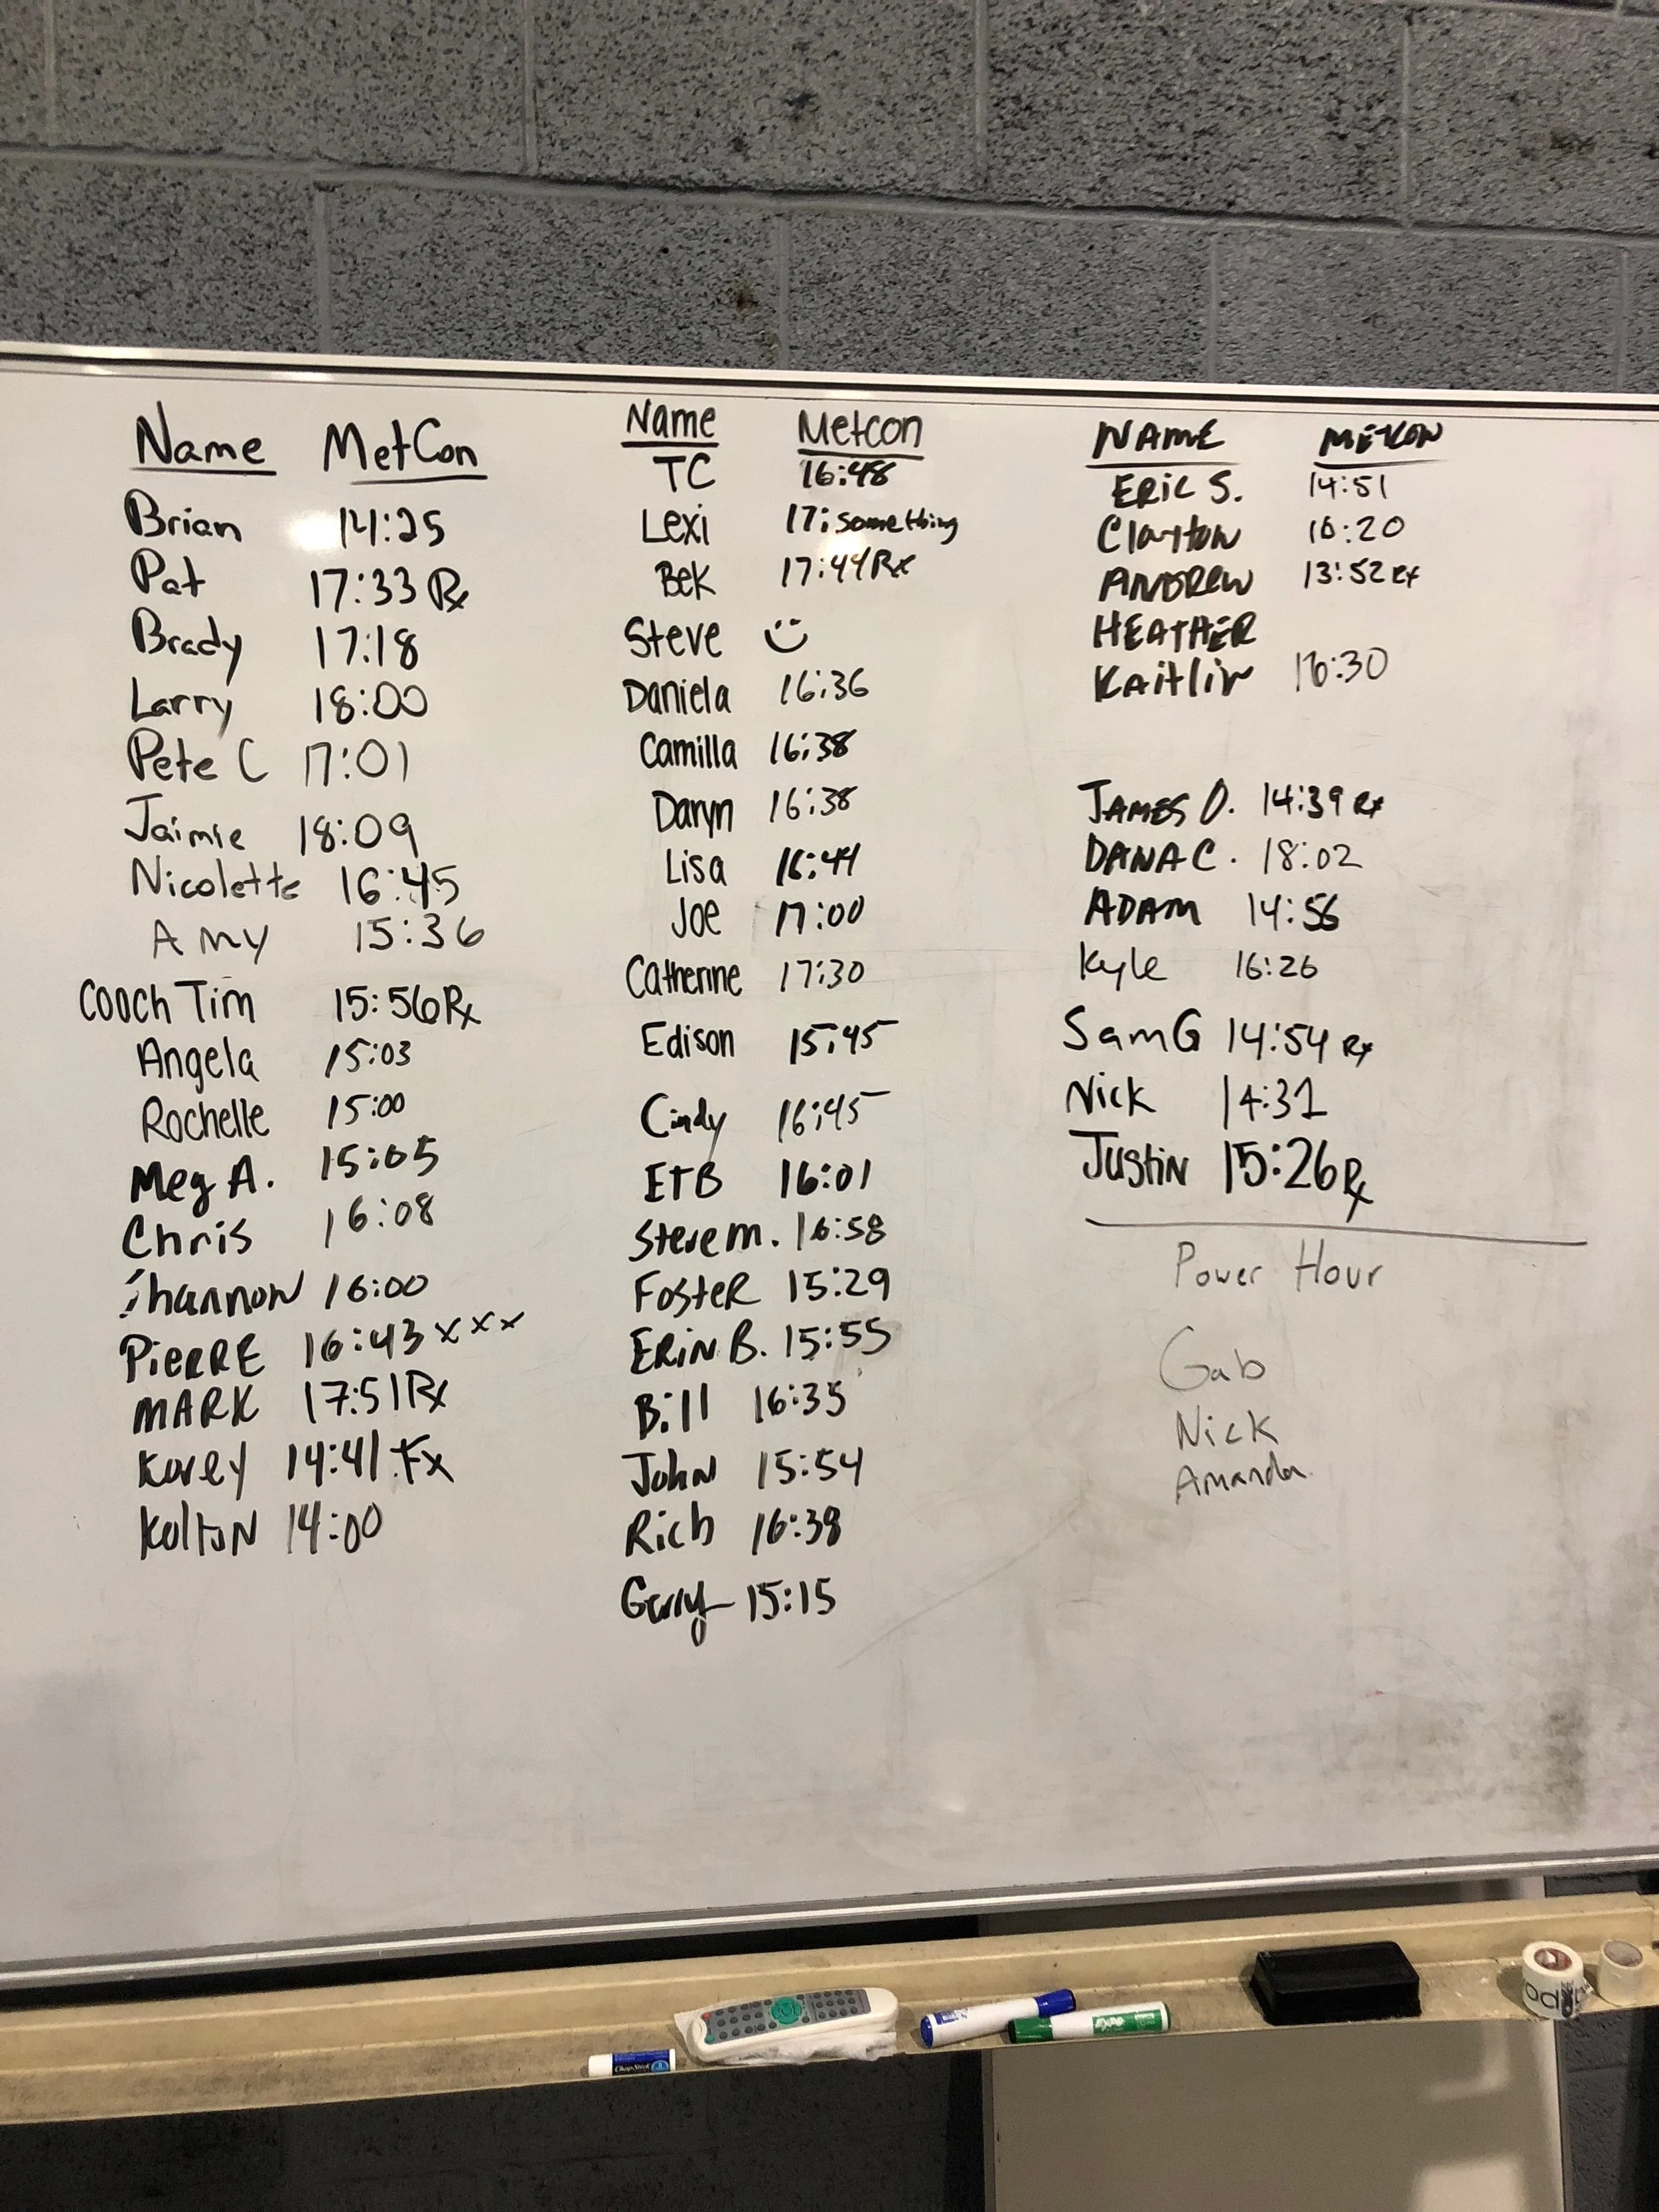 Name MetCon
Brian 14:25
Pat 17:33 Rx
Brady 17:18
Larry 18:00
Pete C 17:01
Jaimie 18:09
Nicolette 16:45
Amy 15:36
Coach Tim 15:56 Rx
Angela 15:03
Rochelle 15:00
Meg A. 15:05
Chris 16:08
Shannon 16:00
PiERRE 16:43 xxx
MARK 17:51 Rx
Korey 14:41
Kolton 14:00
Name Metcon
TC 16:48
Lexi 17:something
Bek 17:44 Rx
Steve
Daniela 16:36
Camilla 16:38
Daryn 16:38
Lisa 16:44
Joe 17:00
Catherine 17:30
Edison 15:45
Cindy 16:45
ETB 16:01
Steve m. 16:58
FosteR 15:29
ERiN B. 15:55
Bill 16:35
John 15:54
Rich
Gerry 15:15
NAME METCON
ERiC S. 14:51
Clayton
ANDREW 13:52 Rx
HEATHER
Kaitlin 16:30
JAMES D. 14:39 Rx
DANA C. 18:02
ADAM 14:56
Kyle 16:26
Sam G 14:54 Rx
Nick 14:31
Justin 15:26 Rx
Power Hour
Gab
Nick
Amanda
ChapStick
EXPO